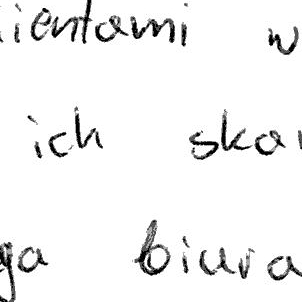 ientami w
ich ska
ga biura